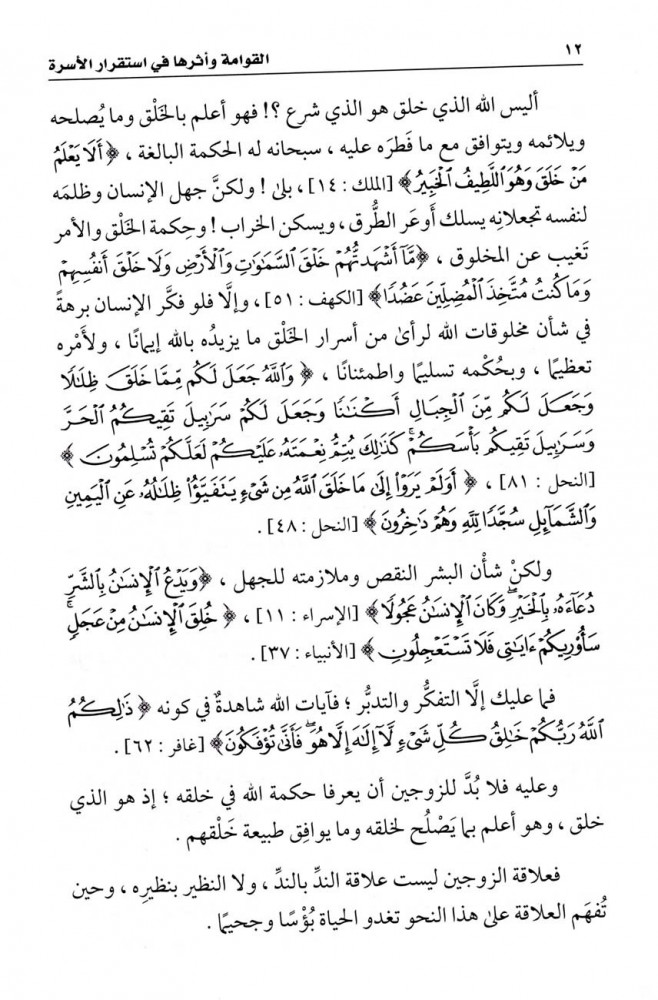 ١٢
القوامة وأثرها في استقرار الأسرة
أليس الله الذي خلق هو الذي شرع ؟! فهو أعلم بالخَلْق وما يُصلحه
ويلائمه ويتوافق مع ما فَطرَه عليه ، سبحانه له الحكمة البالغة ، ﴿أَلَا يَعْلَمُ
مَنْ خَلَقَ وَهُوَ اللَّطِيفُ الْخَبِيرُ﴾ [الملك : ١٤] ، بلىٰ ! ولكنَّ جهل الإنسان وظلمَه
لنفسه تجعلانِه يسلك أوعَر الطُّرق ، ويسكن الخراب ! وحِكمة الخَلْق والأمر
تَغيب عن المخلوق ، ﴿مَّآ أَشْهَدتُّهُمْ خَلْقَ السَّمَٰوَٰتِ وَالْأَرْضِ وَلَا خَلْقَ أَنفُسِهِمْ
وَمَا كُنتُ مُتَّخِذَ الْمُضِلِّينَ عَضُدًا﴾ [الكهف : ٥١] ، وإلَّا فلو فكَّر الإنسان برهةً
في شأن مخلوقات الله لرأىٰ من أسرار الخَلْق ما يزيدُه بالله إيمانًا ، ولأَمْره
تعظيمًا ، وبحُكْمه تسليمًا واطمئنانًا ، ﴿وَاللَّهُ جَعَلَ لَكُم مِّمَّا خَلَقَ ظِلَٰلًا
وَجَعَلَ لَكُم مِّنَ الْجِبَالِ أَكْنَٰنًا وَجَعَلَ لَكُمْ سَرَٰبِيلَ تَقِيكُمُ الْحَرَّ
وَسَرَٰبِيلَ تَقِيكُم بَأْسَكُمْ ۚ كَذَٰلِكَ يُتِمُّ نِعْمَتَهُۥ عَلَيْكُمْ لَعَلَّكُمْ تُسْلِمُونَ﴾
[النحل : ٨١] ، ﴿أَوَلَمْ يَرَوْا إِلَىٰ مَا خَلَقَ اللَّهُ مِن شَيْءٍ يَتَفَيَّؤُا ظِلَٰلُهُۥ عَنِ الْيَمِينِ
وَالشَّمَآئِلِ سُجَّدًا لِّلَّهِ وَهُمْ دَٰخِرُونَ﴾ [النحل : ٤٨] .
ولكنْ شأن البشر النقص وملازمته للجهل ، ﴿وَيَدْعُ الْإِنسَٰنُ بِالشَّرِّ
دُعَآءَهُۥ بِالْخَيْرِ ۖ وَكَانَ الْإِنسَٰنُ عَجُولًا﴾ [الإسراء : ١١] ، ﴿خُلِقَ الْإِنسَٰنُ مِنْ عَجَلٍ ۚ
سَأُوْرِيكُمْ ءَايَٰتِي فَلَا تَسْتَعْجِلُونِ﴾ [الأنبياء : ٣٧] .
فما عليك إلَّا التفكُّر والتدبُّر ؛ فآيات الله شاهدةٌ في كونه ﴿ذَٰلِكُمُ
اللَّهُ رَبُّكُمْ خَٰلِقُ كُلِّ شَيْءٍ لَّآ إِلَٰهَ إِلَّا هُوَ ۖ فَأَنَّىٰ تُؤْفَكُونَ﴾ [غافر : ٦٢] .
وعليه فلا بُدَّ للزوجين أن يعرفا حكمة الله في خلقه ؛ إذ هو الذي
خلق ، وهو أعلم بما يَصْلُح لخلقه وما يوافِق طبيعة خَلْقهم .
فعلاقة الزوجين ليست علاقة الندِّ بالندِّ ، ولا النظير بنظيرِه ، وحين
تُفهَم العلاقة علىٰ هذا النحو تغدو الحياة بُؤْسًا وجحيمًا .